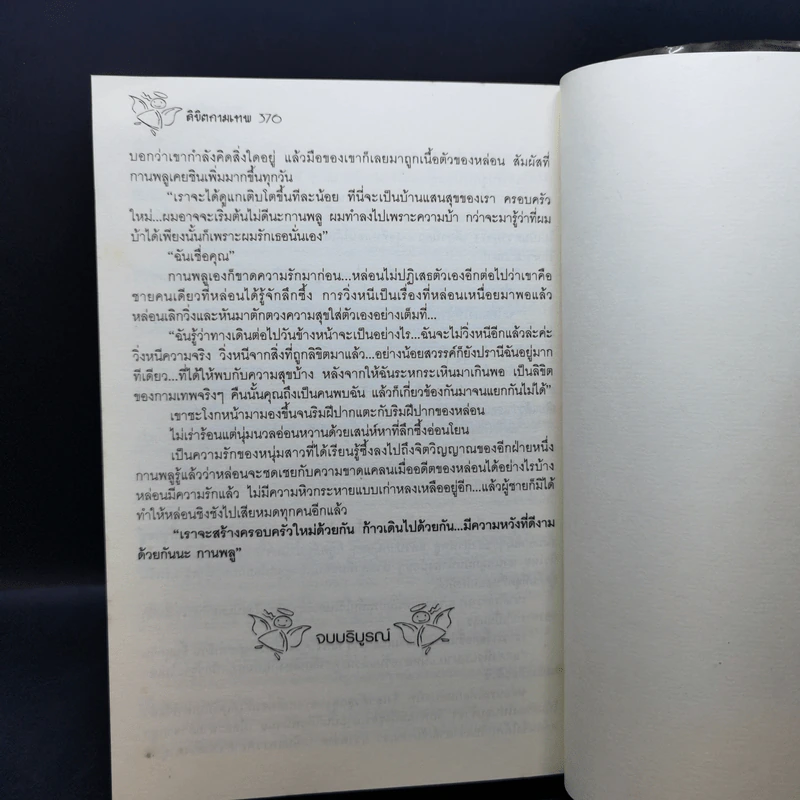 ลิขิตกามเทพ 376
บอกว่าเขากำลังคิดสิ่งใดอยู่ แล้วมือของเขาก็เลยมาถูกเนื้อตัวของหล่อน สัมผัสที่
กานพลูเคยชินเพิ่มมากขึ้นทุกวัน
“เราจะได้ดูแกเติบโตขึ้นทีละน้อย ที่นี่จะเป็นบ้านแสนสุขของเรา ครอบครัว
ใหม่...ผมอาจจะเริ่มต้นไม่ดีนะกานพลู ผมทำลงไปเพราะความบ้า กว่าจะมารู้ว่าที่ผม
บ้าได้เพียงนั้นก็เพราะผมรักเธอนั่นเอง”
“ฉันเชื่อคุณ”
กานพลูเองก็ขาดความรักมาก่อน...หล่อนไม่ปฏิเสธตัวเองอีกต่อไปว่าเขาคือ
ชายคนเดียวที่หล่อนได้รู้จักลึกซึ้ง การวิ่งหนีเป็นเรื่องที่หล่อนเหนื่อยมาพอแล้ว
หล่อนเลิกวิ่งและหันมาตักตวงความสุขใส่ตัวเองอย่างเต็มที่...
“ฉันรู้ว่าทางเดินต่อไปวันข้างหน้าจะเป็นอย่างไร...ฉันจะไม่วิ่งหนีอีกแล้วล่ะค่ะ
วิ่งหนีความจริง วิ่งหนีจากสิ่งที่ถูกลิขิตมาแล้ว...อย่างน้อยสวรรค์ก็ยังปรานีฉันอยู่มาก
ทีเดียว...ที่ได้ให้พบกับความสุขบ้าง หลังจากให้ฉันระหกระเหินมาเกินพอ เป็นลิขิต
ของกามเทพจริงๆ คืนนั้นคุณถึงเป็นคนพบฉัน แล้วก็เกี่ยวข้องกันมาจนแยกกันไม่ได้”
เขาชะโงกหน้ามามองขึ้นจนริมฝีปากแตะกับริมฝีปากของหล่อน
ไม่เร่าร้อนแต่นุ่มนวลอ่อนหวานด้วยเสน่ห์หาที่ลึกซึ้งอ่อนโยน
เป็นความรักของหนุ่มสาวที่ได้เรียนรู้ซึ้งลงไปถึงจิตวิญญาณของอีกฝ่ายหนึ่ง
กานพลูรู้แล้วว่าหล่อนจะชดเชยกับความขาดแคลนเมื่ออดีตของหล่อนได้อย่างไรบ้าง
หล่อนมีความรักแล้ว ไม่มีความหิวกระหายแบบเก่าหลงเหลืออยู่อีก...แล้วผู้ชายก็มิได้
ทำให้หล่อนชิงชังไปเสียหมดทุกคนอีกแล้ว
“เราจะสร้างครอบครัวใหม่ด้วยกัน ก้าวเดินไปด้วยกัน...มีความหวังที่ดีงาม
ด้วยกันนะ กานพลู”
จบบริบูรณ์